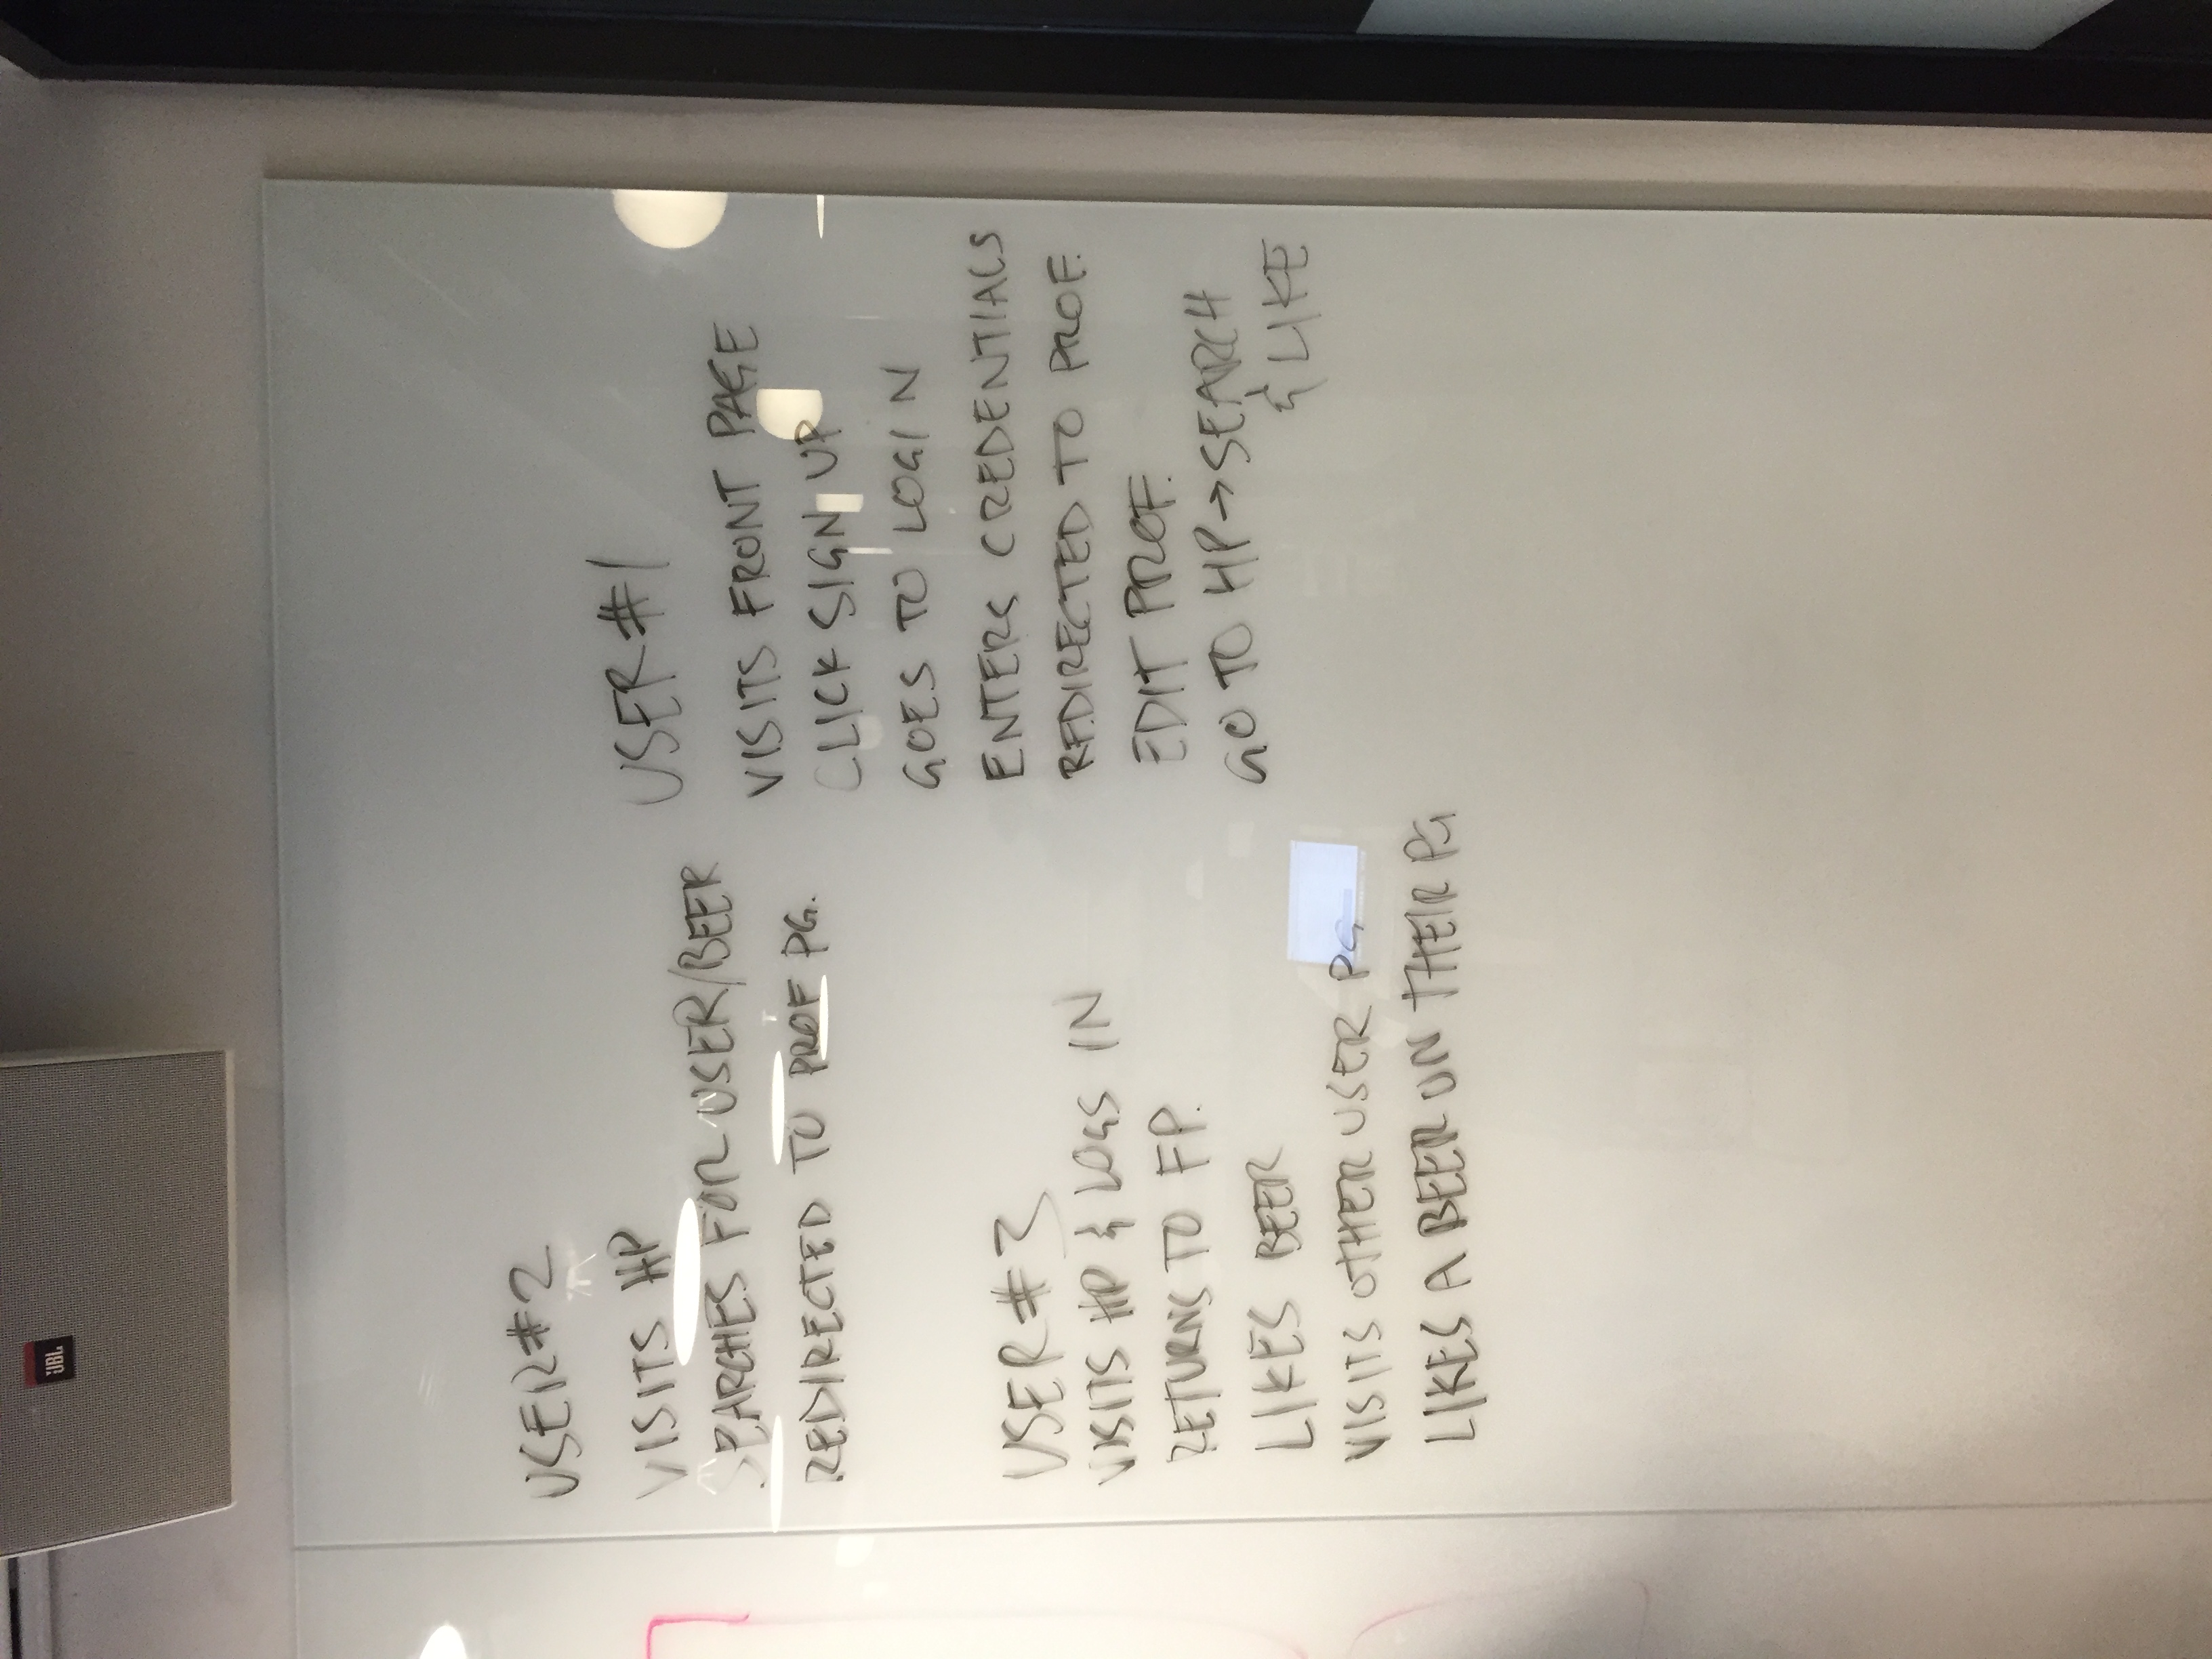 JBL
USER #2
VISITS HP
SEARCHES FOR USER/BEER
REDIRECTED TO PROF PG.
USER #3
VISITS HP & LOGS IN
RETURNS TO FP.
LIKES BEER
VISITS OTHER USER PG
LIKES A BEER ON THEIR PG
USER #1
VISITS FRONT PAGE
CLICK SIGN UP
GOES TO LOGIN
ENTERS CREDENTIALS
REDIRECTED TO PROF.
EDIT PROF.
GO TO HP → SEARCH
& LIKE